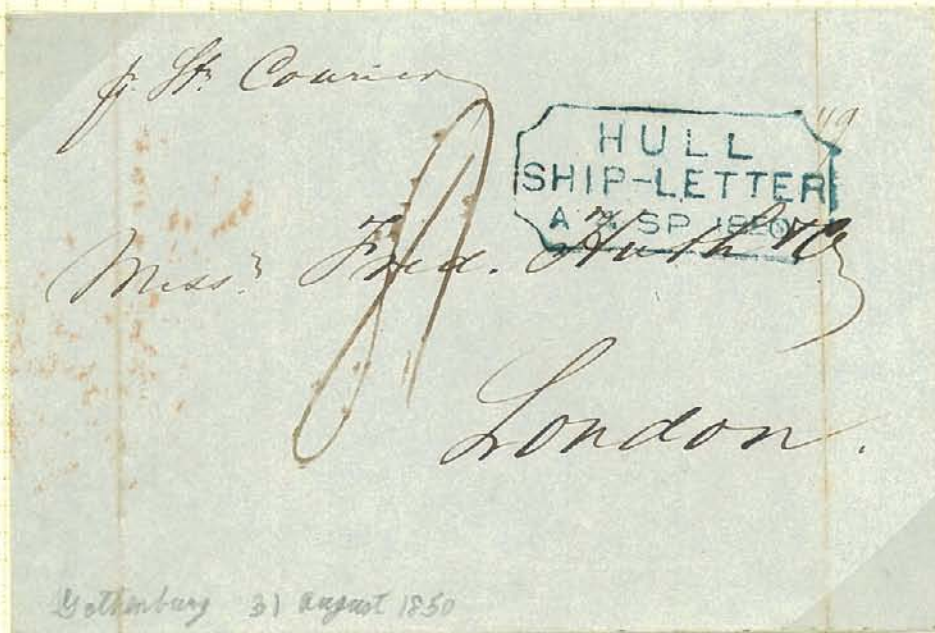 pr. Str. Courier
HULL
SHIP-LETTER
A SP 1850
Messrs Fred. Huth & Co
London.
Gothenburg 31 August 1850